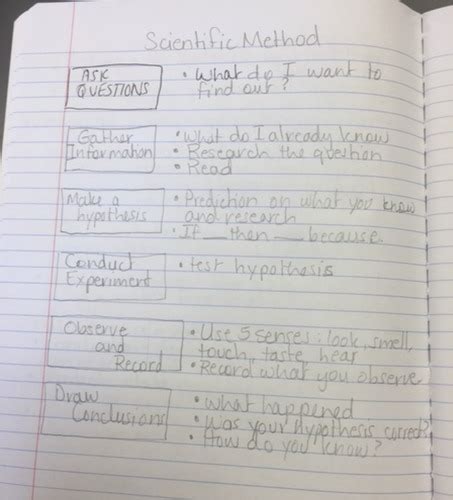 Scientific Method
ASK QUESTIONS
• What do I want to
find out?
Gather Information
• What do I already know
• Research the question
• Read
Make a hypothesis
• Prediction on what you know
and research
• If __ then __ because.
Conduct Experiment
• test hypothesis
Observe and Record
• Use 5 senses: look, smell,
touch, taste, hear
• Record what you observe
Draw Conclusions
• What happened
• Was your hypothesis correct?
• How do you know?